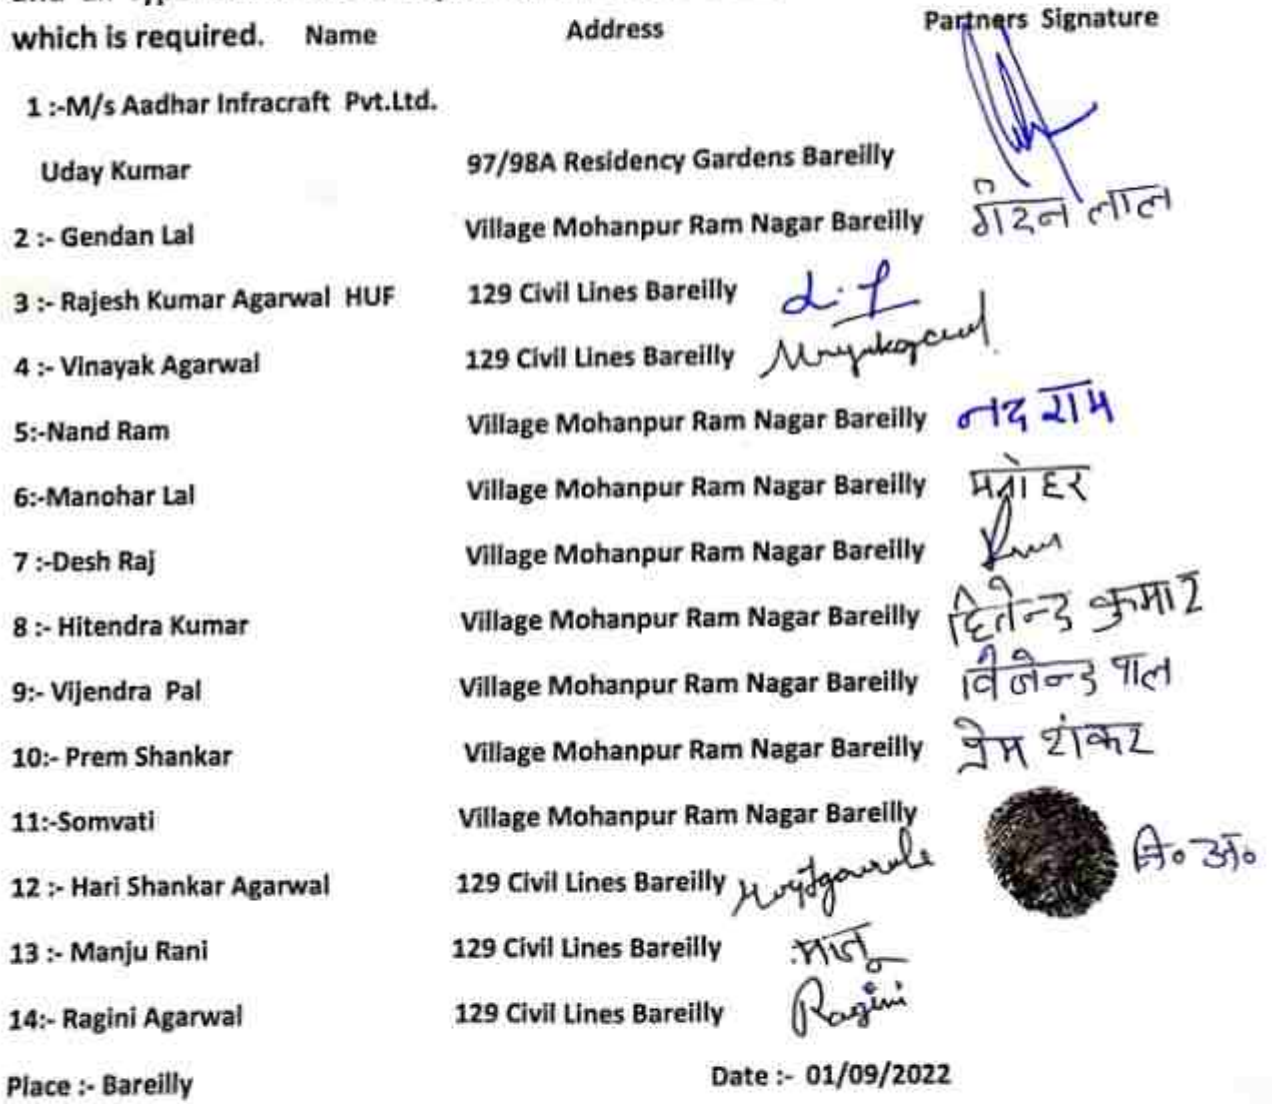 which is required. Name Address Partners Signature
1 :-M/s Aadhar Infracraft Pvt.Ltd.
Uday Kumar 97/98A Residency Gardens Bareilly
2 :- Gendan Lal Village Mohanpur Ram Nagar Bareilly गेंदन लाल
3 :- Rajesh Kumar Agarwal HUF 129 Civil Lines Bareilly
4 :- Vinayak Agarwal 129 Civil Lines Bareilly
5:-Nand Ram Village Mohanpur Ram Nagar Bareilly नद राम
6:-Manohar Lal Village Mohanpur Ram Nagar Bareilly मनोहर
7 :-Desh Raj Village Mohanpur Ram Nagar Bareilly
8 :- Hitendra Kumar Village Mohanpur Ram Nagar Bareilly हितेन्द्र कुमार
9:- Vijendra Pal Village Mohanpur Ram Nagar Bareilly विजेन्द्र पाल
10:- Prem Shankar Village Mohanpur Ram Nagar Bareilly प्रेम शंकर
11:-Somvati Village Mohanpur Ram Nagar Bareilly नि० अं०
12 :- Hari Shankar Agarwal 129 Civil Lines Bareilly
13 :- Manju Rani 129 Civil Lines Bareilly मंजू
14:- Ragini Agarwal 129 Civil Lines Bareilly Ragini
Place :- Bareilly Date :- 01/09/2022